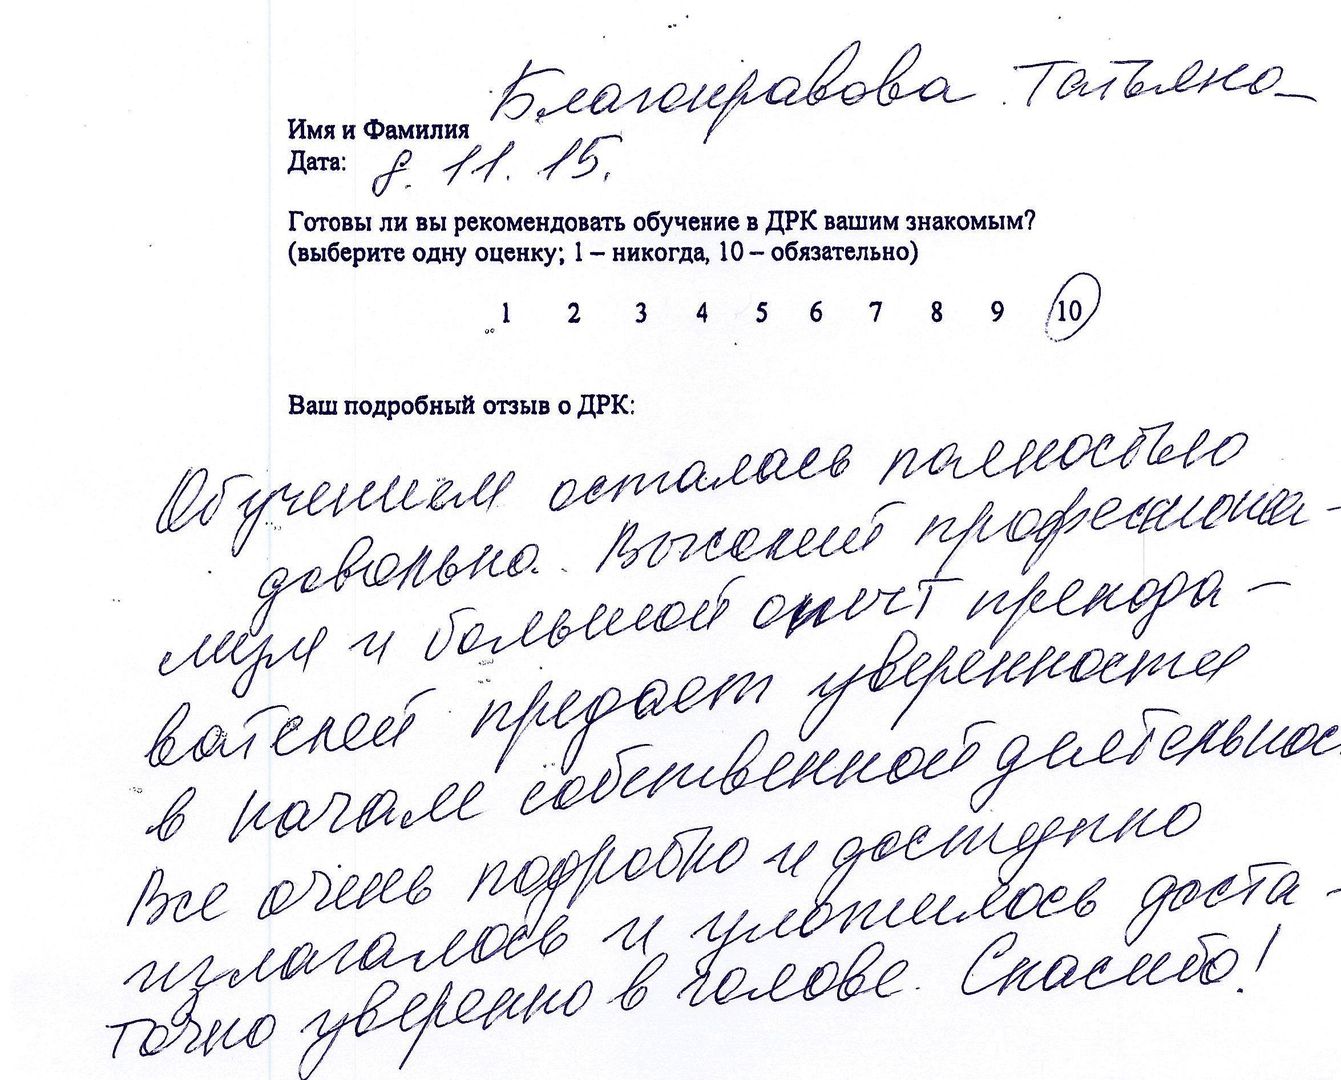 Благонравова Татьяна
Имя и Фамилия
Дата: 8.11.15.
Готовы ли вы рекомендовать обучение в ДРК вашим знакомым?
(выберите одну оценку; 1 – никогда, 10 – обязательно)
1 2 3 4 5 6 7 8 9 10
Ваш подробный отзыв о ДРК:
Обучением осталась полностью
довольна. Высокий профессиона-
лизм и большой опыт препода-
вателей предает уверенности
в начале собственной деятельнос
Все очень подробно и доступно
излагалось и уложилось доста-
точно уверенно в голове. Спасибо!